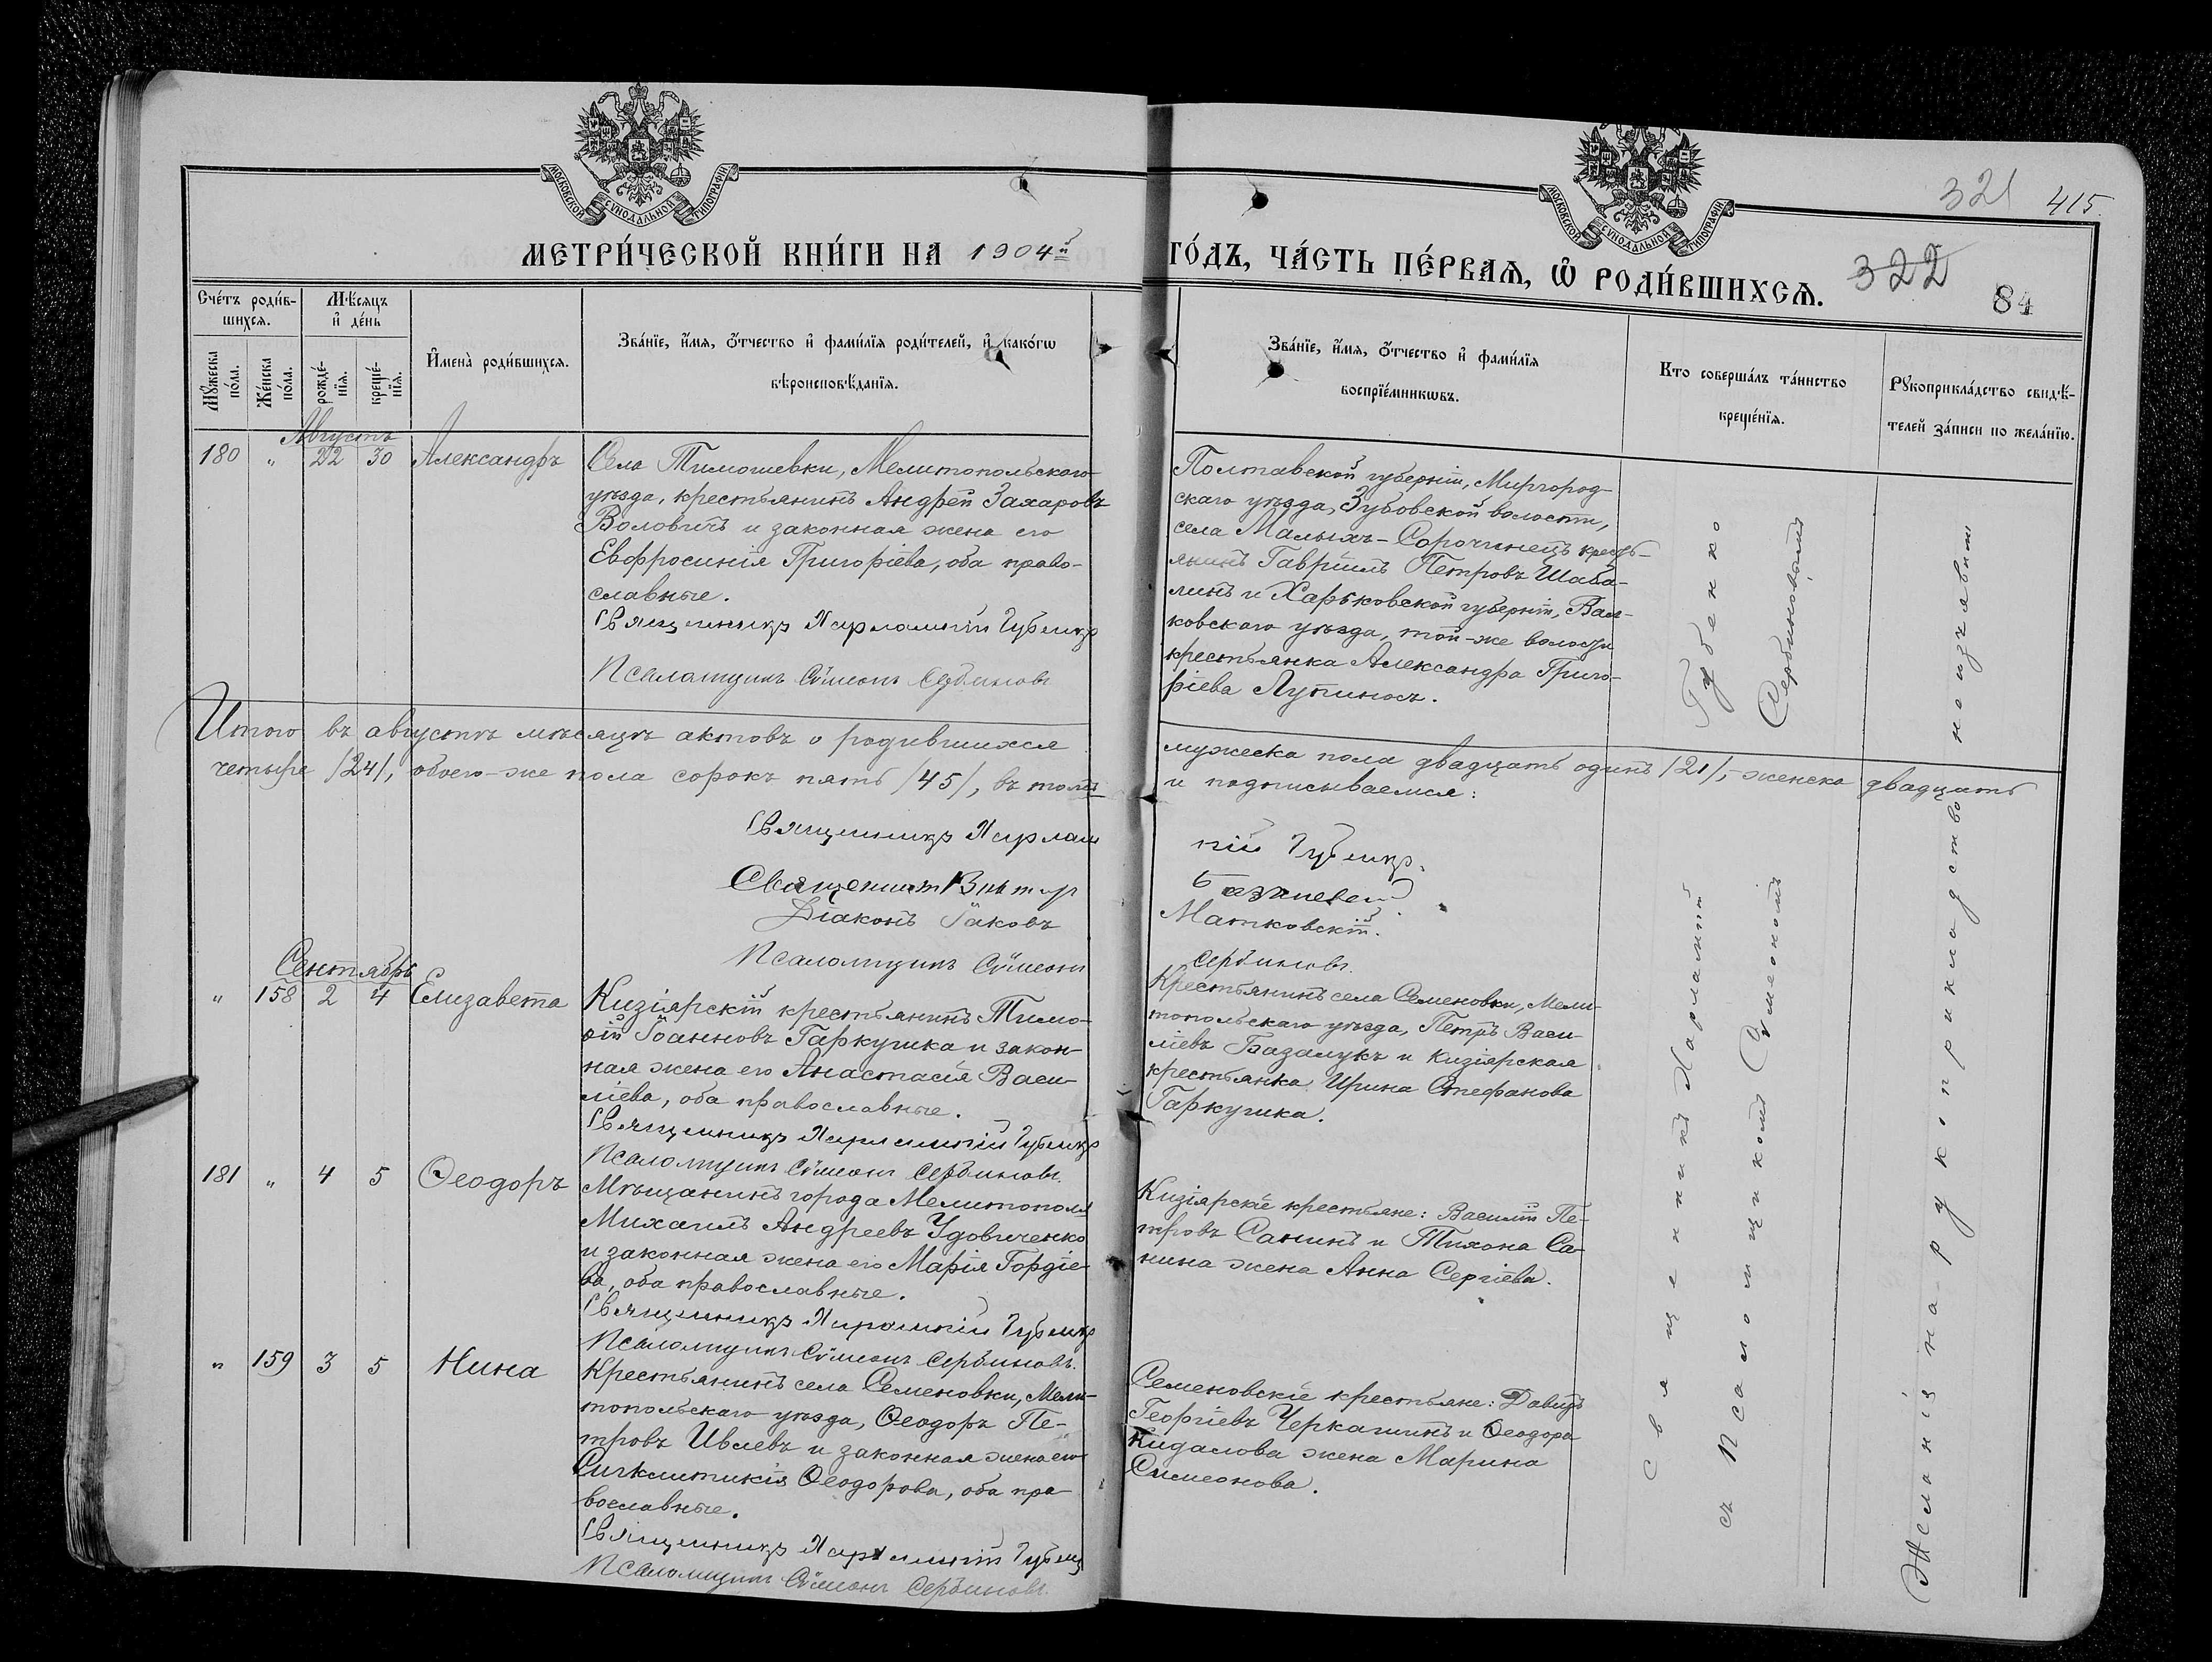 МОСКОВСКОЙ СѴНОДАЛЬНОЙ ТИПОГРАФІИ
МОСКОВСКОЙ СѴНОДАЛЬНОЙ ТИПОГРАФІИ
321 415.
МЕТРИ́ЧЕСКОЙ КНИ́ГИ НА 1904й
ГО́ДЪ, ЧА́СТЬ ПЕ́РВАЯ, Ѿ РОДИ́ВШИХСЯ.
322
84
Сче́тъ роди́в-
шихся.
Мѣ́сяцъ
и҆ де́нь
Мꙋ́жеска
по́ла.
Же́нска
по́ла.
рожде́-
нїя.
креще́-
нїя.
И҆мена̀ роди́вшихся.
Зва́нїе, и҆́мя, ѻ҆́тчество и҆ фами́лїя роди́телей, и҆ како́гѡ
вѣроисповѣ́данїя.
Зва́нїе, и҆́мя, ѻ҆́тчество и҆ фами́лїя
воспрїе́мникѡвъ.
Кто соверша́лъ та́инство
креще́нїя.
Рꙋкоприкла́дство свидѣ́-
телей за́писи по жела́нїю.
Августъ
180 " 22 30 Александръ
Села Тимошевки, Мелитопольскаго
уѣзда, крестьянинъ Андрей Захаровъ
Воловичъ и законная жена его
Евфросинія Григоріева, оба право-
славные.
Священникъ Харлампій Губенко
Псаломщикъ Сѵмеонъ Сербиновъ
Полтавской губерніи, Миргород-
скаго уѣзда, Зубовской волости,
села Малыхъ-Сорочинецъ кресть-
янинъ Гавріилъ Петровъ Шаба-
линъ и Харьковской губерніи, Вал-
ковскаго уѣзда, той-же волости
крестьянка Александра Григо-
ріева Лупиносъ.
Итого въ августѣ мѣсяцѣ актовъ о родившихся
мужеска пола двадцать одинъ /21/, женска двадцать
четыре /24/, обоего-же пола сорокъ пять /45/, въ томъ
и подписываемся:
Священникъ Харлам
пій Губенко.
Священникъ Викторъ
Діаконъ Іаковъ
Матковскій.
Псаломщикъ Сѵмеонъ
Сербиновъ.
Сентябрь
" 158 2 4 Елизавета
Кизіярскій крестьянинъ Тимо-
ѳій Іоанновъ Гаркушка и закон-
ная жена его Анастасія Васи-
ліева, оба православные.
Священникъ Харлампій Губенко
Псаломщикъ Сѵмеонъ Сербиновъ.
Крестьянинъ села Семеновки, Мели-
топольскаго уѣзда, Петръ Васи-
ліевъ Базалукъ и кизіярская
крестьянка Ирина Стефанова
Гаркушка.
181 " 4 5 Ѳеодоръ
Мѣщанинъ города Мелитополя
Михаилъ Андреевъ Удовиченко
и законная жена его Марія Гордіе-
ва, оба православные.
Священникъ Харлампій Губенко
Псаломщикъ Сѵмеонъ Сербиновъ.
Кизіярскіе крестьяне: Василій Пе-
тровъ Санинъ и Тихона Са-
нина жена Анна Сергіева.
" 159 3 5 Нина
Крестьянинъ села Семеновки, Мели-
топольскаго уѣзда, Ѳеодоръ Пе-
тровъ Ивлевъ и законная жена его
Синклитикія Ѳеодорова, оба пра-
вославные.
Священникъ Харлампій Губенко
Псаломщикъ Сѵмеонъ Сербиновъ.
Семеновскіе крестьяне: Давидъ
Георгіевъ Черкашинъ и Ѳеодора
Кидалова жена Марина
Симеонова.
Священникъ Харлампій Губенко
съ Псаломщикомъ Сѵмеономъ Сербиновымъ
Желаніе на рукоприкладство не изъявили